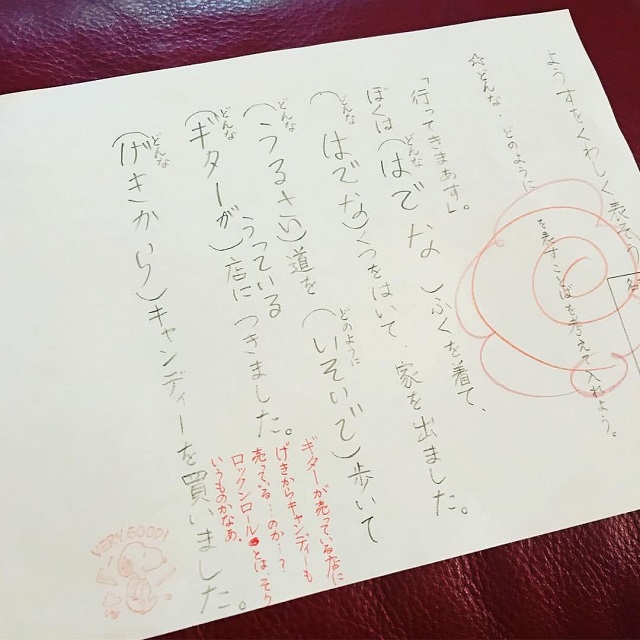 ようすをくわしく表そう
☆どんな・どのように
を表すことばを考えて入れよう。
「行ってきまあす」。
どんな
ぼくは（はでな）ふくを着て、
家を出ました。
どんな
（はでな）くつをはいて、
どんな
（うるさい）道を
どのように
（いそいで）歩いて
どんな
（ギターが）うっている
店につきました。
どんな
（げきから）キャンディーを買いました。
ギターが売っている店に
げきからキャンディーも
売っている…のか…？
ロックンロールとは、そう
いうものかなあ。
VERY GOOD!